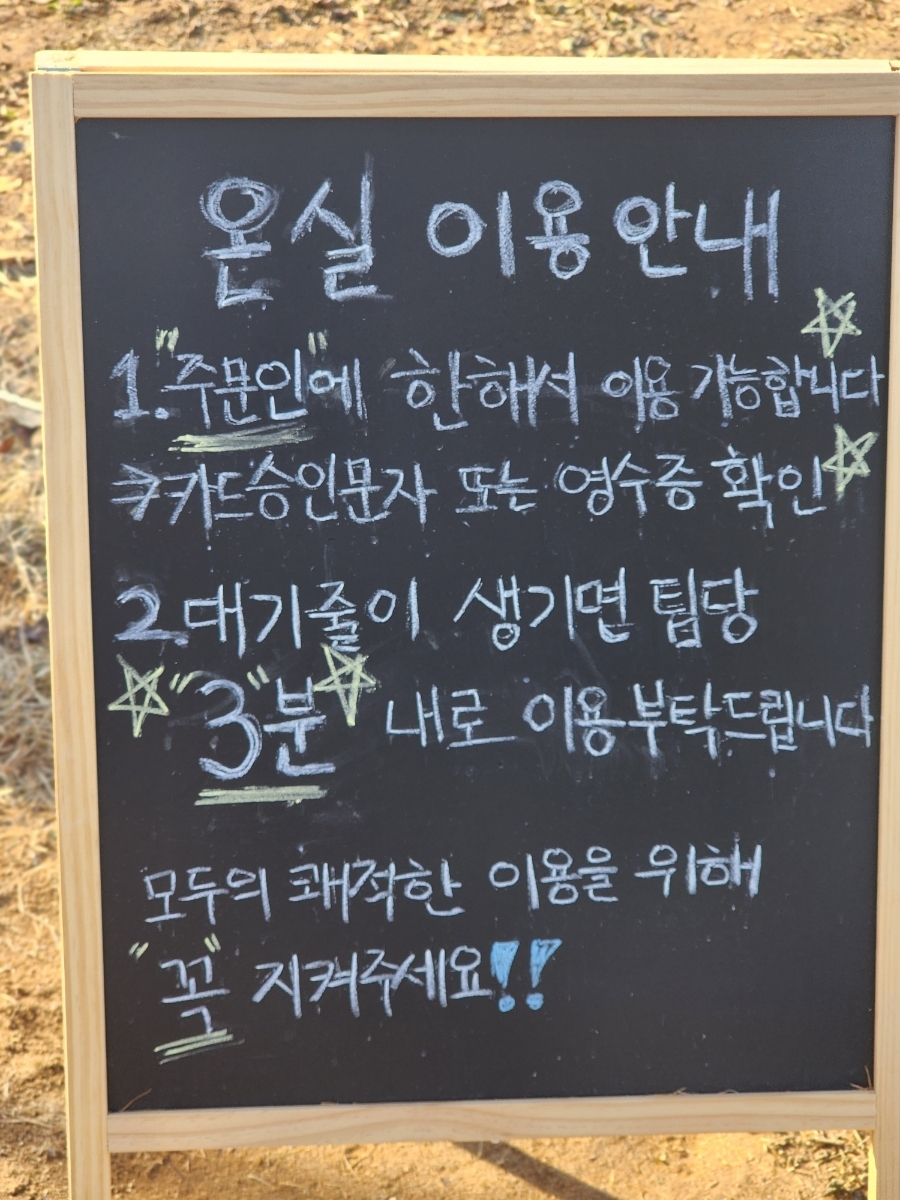 온실 이용안내
1. "주문인"에 한해서 이용 가능합니다
→카드승인문자 또는 영수증 확인
2. 대기줄이 생기면 팀당
"3"분 내로 이용부탁드립니다
모두의 쾌적한 이용을 위해
"꼭" 지켜주세요!!